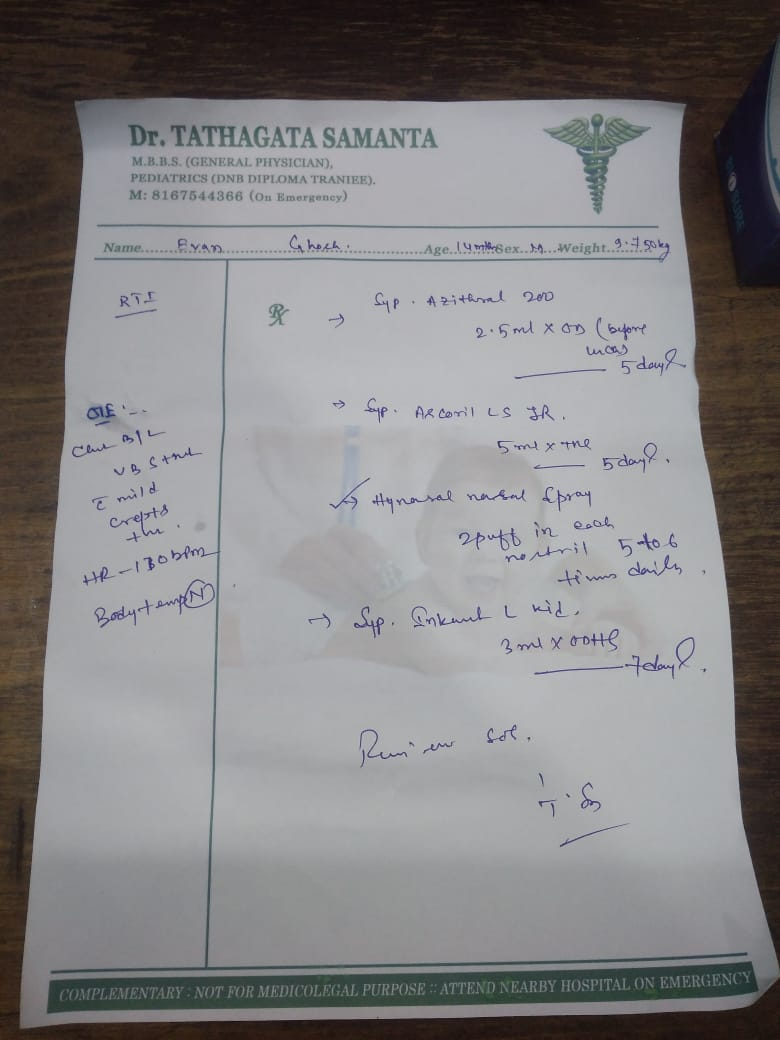 Dr. TATHAGATA SAMANTA
M.B.B.S. (GENERAL PHYSICIAN),
PEDIATRICS (DNB DIPLOMA TRANIEE).
M: 8167544366 (On Emergency)
Name...... Evan Ghosh. ......Age. 14 mth Sex. M Weight. 9.750kg
RTI
Rx → Syp. Azithral 200
2.5ml x OD (before
meas)
5 days
O/E :-
Chest B/L
VBS +nt
c mild
crepts
+nt.
HR - 130 bpm
Body temp (N)
→ Syp. Ascoril LS JR.
5ml x
5 days.
→ Hynasal nasal Spray
2puff in each
nostril 5 to 6
times daily.
→ Syp. L kid.
3 ml x ODHS
7 days.
Review sos.
T.S
COMPLEMENTARY : NOT FOR MEDICOLEGAL PURPOSE :: ATTEND NEARBY HOSPITAL ON EMERGENCY